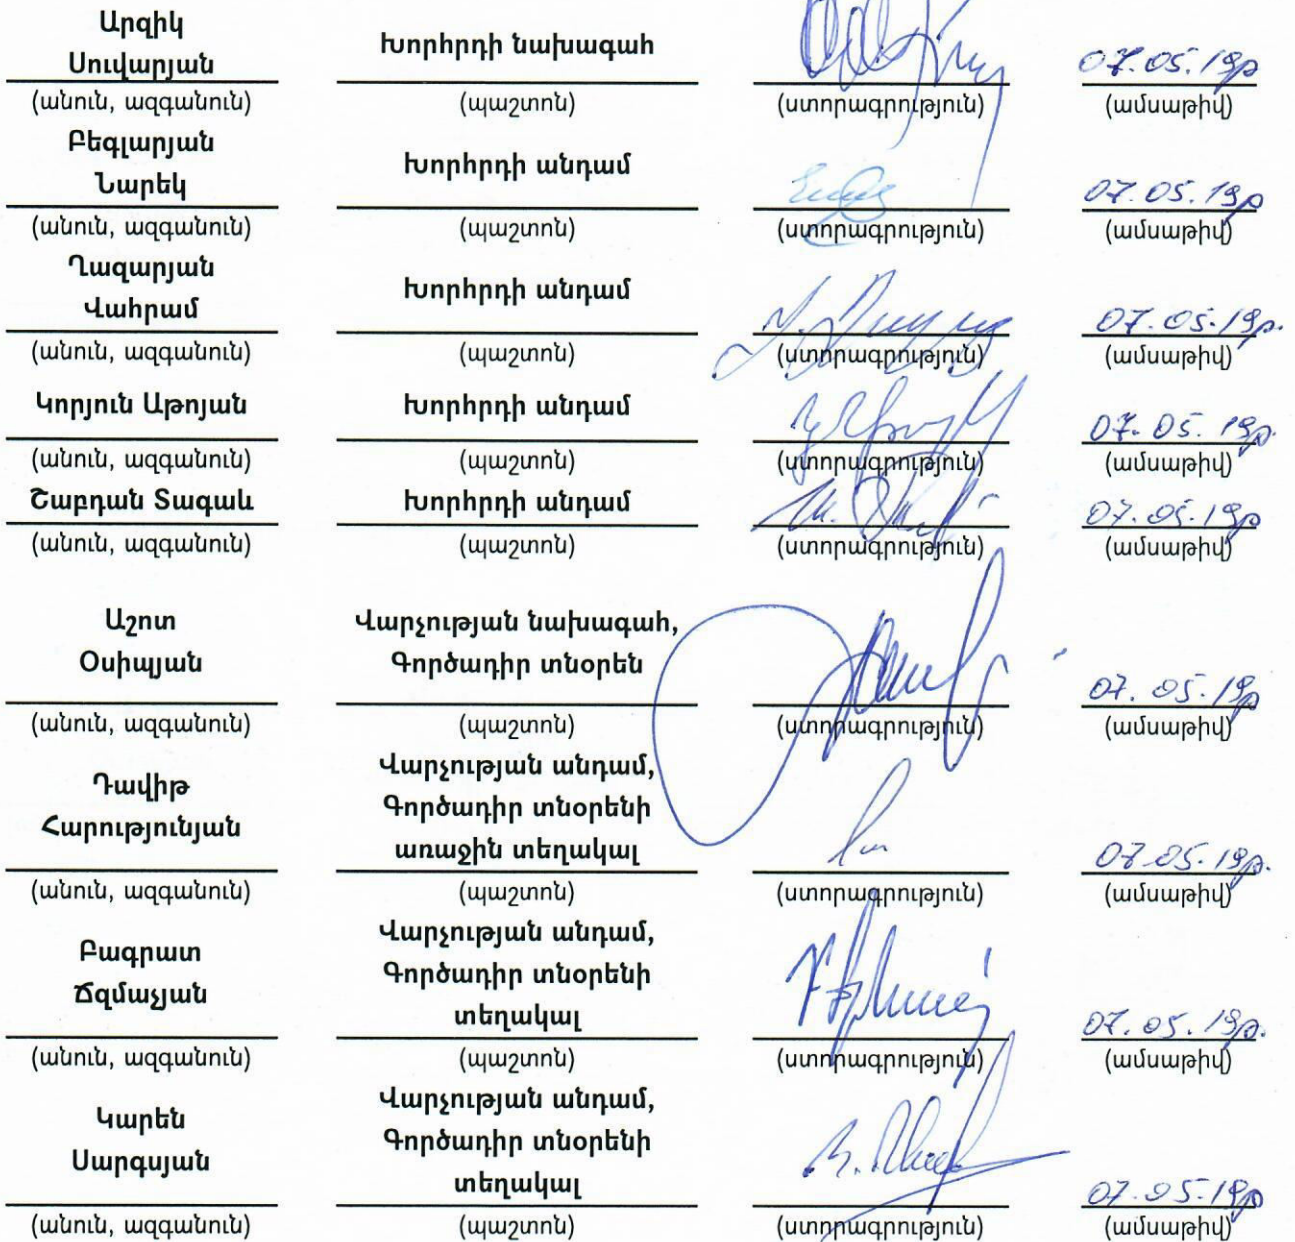 Արզիկ
Սուվարյան Խորհրդի նախագահ 07.05.19թ
(անուն, ազգանուն) (պաշտոն) (ստորագրություն) (ամսաթիվ)
Բեգլարյան
Նարեկ Խորհրդի անդամ 07.05.19թ
(անուն, ազգանուն) (պաշտոն) (ստորագրություն) (ամսաթիվ)
Ղազարյան
Վահրամ Խորհրդի անդամ 07.05.19թ.
(անուն, ազգանուն) (պաշտոն) (ստորագրություն) (ամսաթիվ)
Կորյուն Աթոյան Խորհրդի անդամ 07.05.19թ.
(անուն, ազգանուն) (պաշտոն) (ստորագրություն) (ամսաթիվ)
Շաբդան Տագաև Խորհրդի անդամ 07.05.19թ
(անուն, ազգանուն) (պաշտոն) (ստորագրություն) (ամսաթիվ)
Աշոտ Վարչության նախագահ,
Օսիպյան Գործադիր տնօրեն 07.05.19թ
(անուն, ազգանուն) (պաշտոն) (ստորագրություն) (ամսաթիվ)
Վարչության անդամ,
Դավիթ Գործադիր տնօրենի
Հարությունյան առաջին տեղակալ 07.05.19թ.
(անուն, ազգանուն) (պաշտոն) (ստորագրություն) (ամսաթիվ)
Վարչության անդամ,
Բագրատ Գործադիր տնօրենի
Ճզմաչյան տեղակալ 07.05.19թ.
(անուն, ազգանուն) (պաշտոն) (ստորագրություն) (ամսաթիվ)
Վարչության անդամ,
Կարեն Գործադիր տնօրենի
Սարգսյան տեղակալ 07.05.19թ
(անուն, ազգանուն) (պաշտոն) (ստորագրություն) (ամսաթիվ)